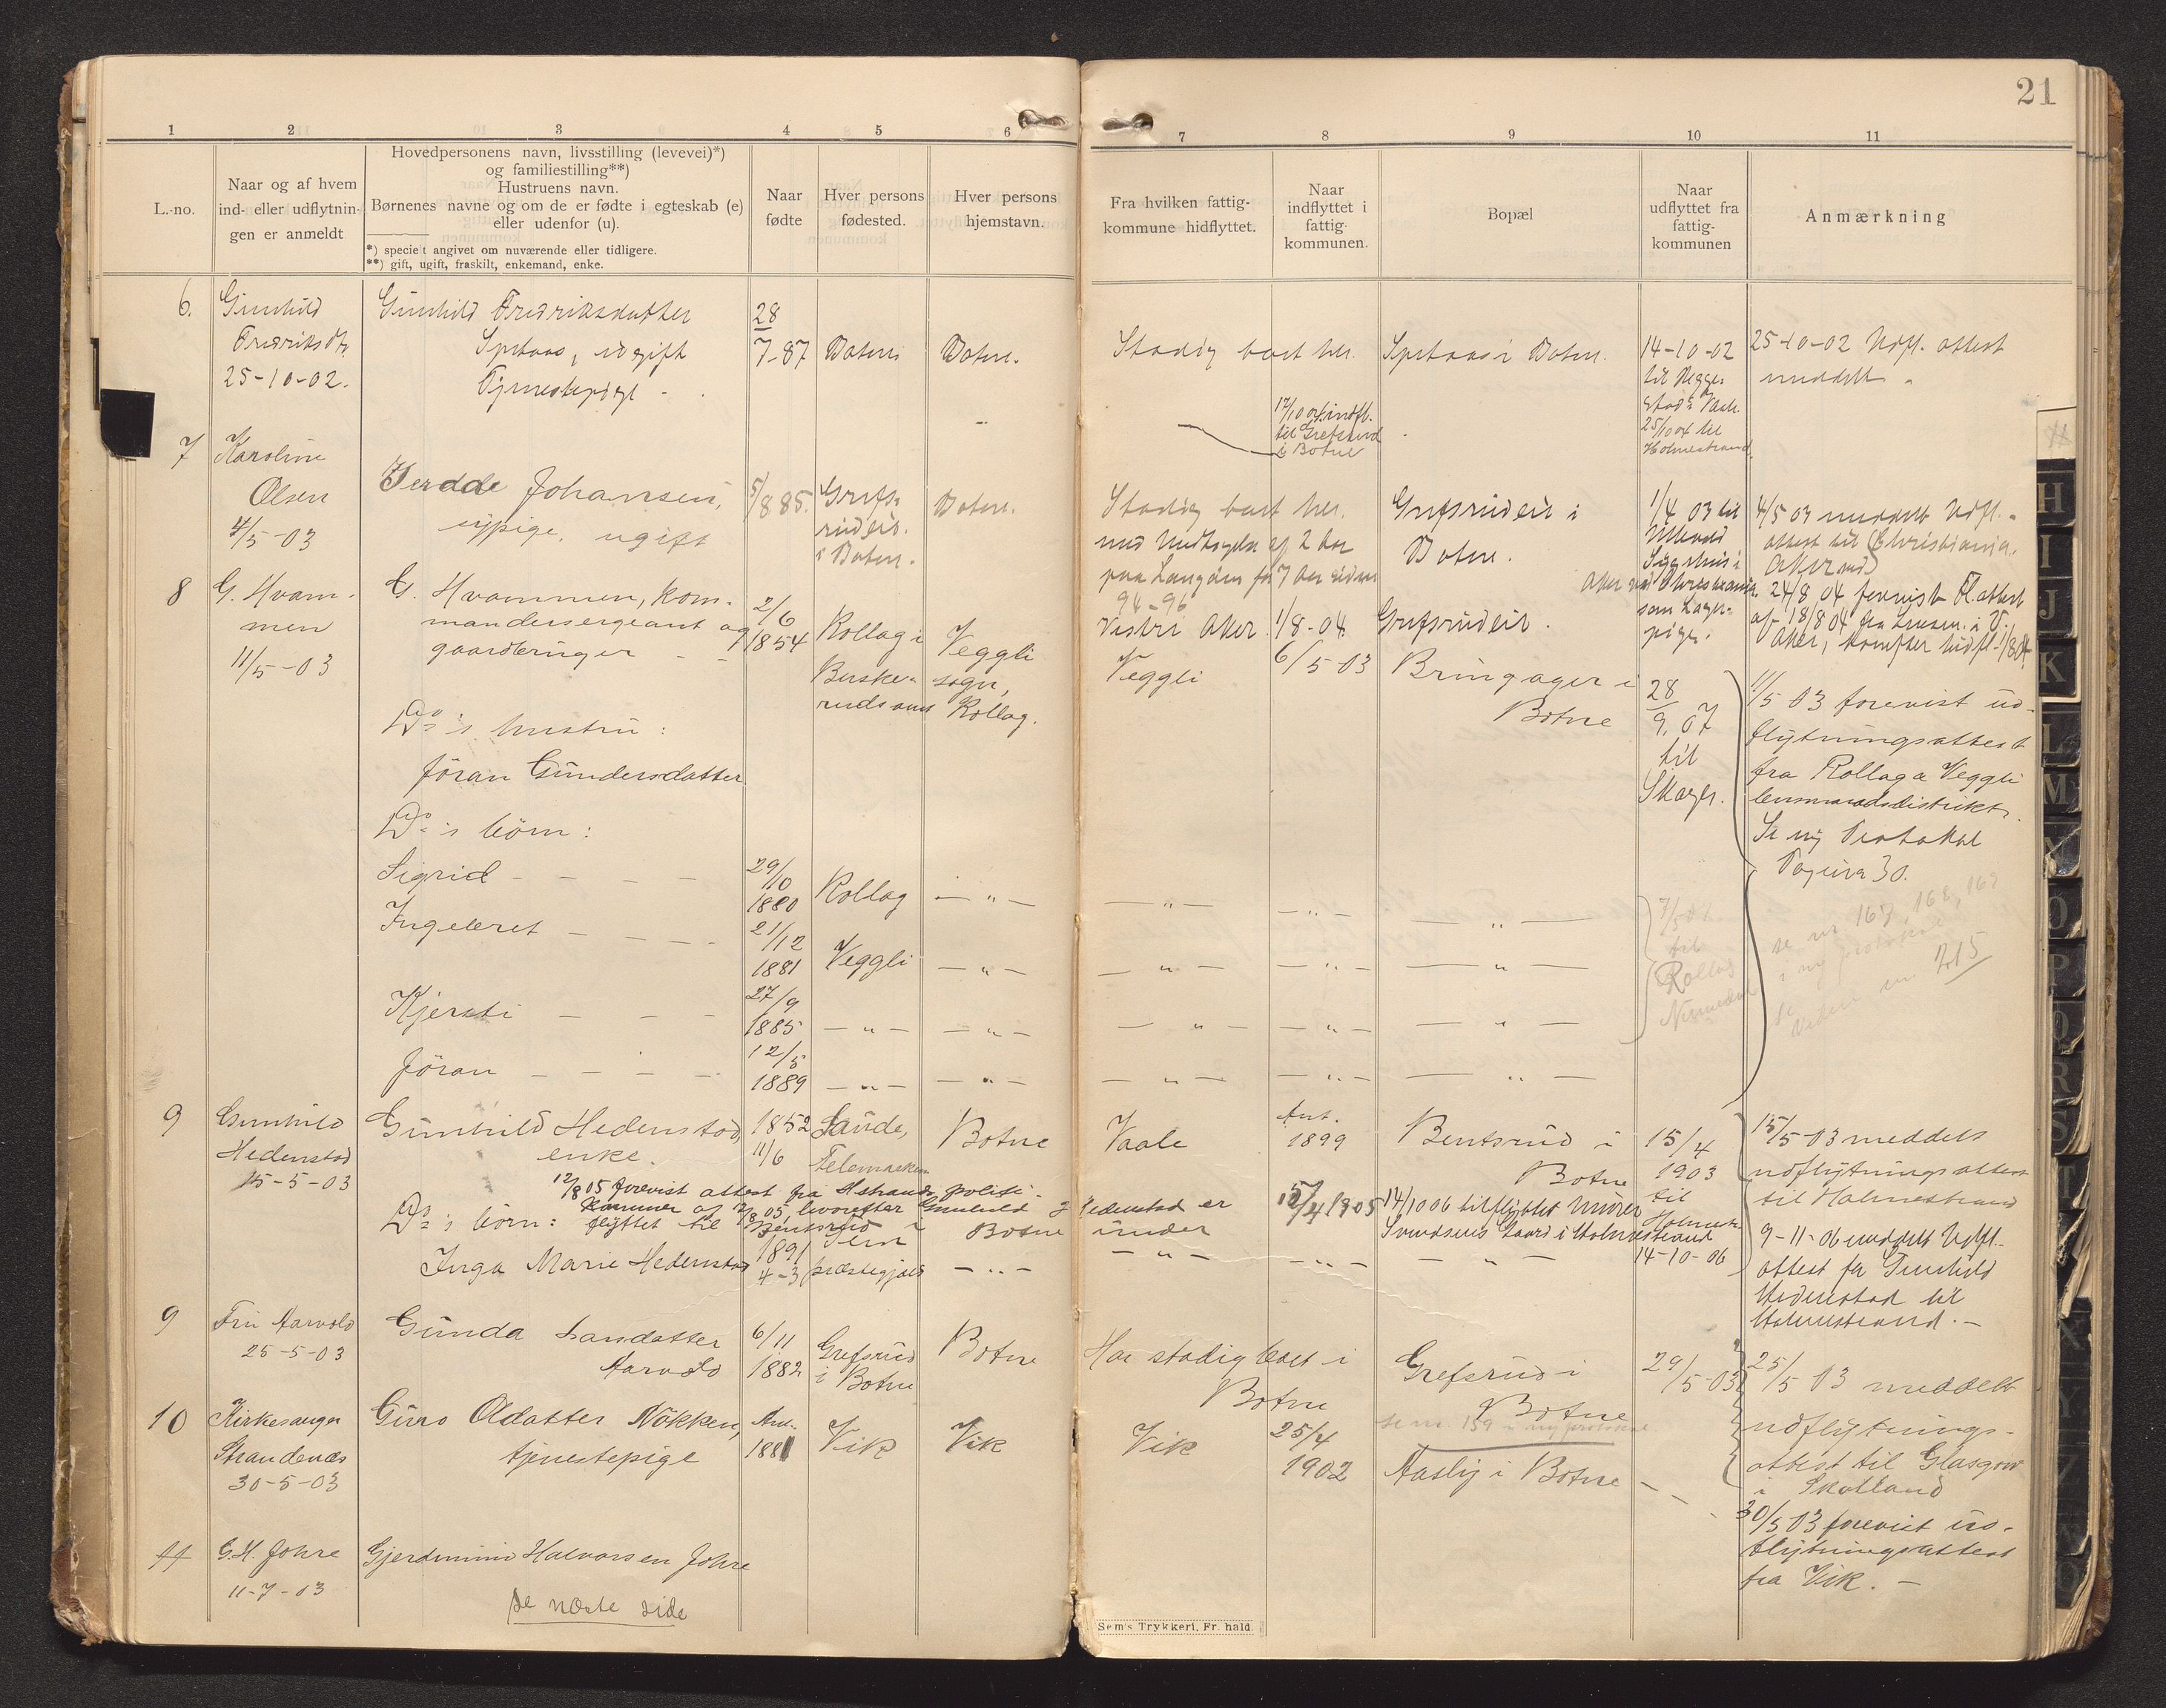 21
1 2 3 4 5 6 7 8 9 10 11
L.-no.
Naar og af hvem
ind- eller udflytnin-
gen er anmeldt
Hovedpersonens navn, livsstilling (levevei)*)
og familiestilling**)
Hustruens navn.
Børnenes navne og om de er fødte i egteskab (e)
eller udenfor (u).
*) specielt angivet om nuværende eller tidligere.
**) gift, ugift, fraskilt, enkemand, enke.
Naar
fødte
Hver persons
fødested.
Hver persons
hjemstavn.
Fra hvilken fattig-
kommune hidflyttet.
Naar
indflyttet i
fattig-
kommunen.
Bopæl
Naar
udflyttet fra
fattig-
kommunen
Anmærkning
6.
Gunhild
Fredriksdtr
25-10-02.
Gunhild Fredriksdatter
ugift
Tjenestepige
28
7-87
Botne
Botne.
Stadig boet her.
i Botne.
14-10-02
til
25/10 04 til
Holmestrand
25-10-02 Udfl. attest
meddelt.
17/10 04 indfl.
til Grefsrud
i Botne
7
Karoline
Olsen
4/5-03
Johansen,
sypige, ugift
5/8 85.
Grefs-
rudeie.
i Botne.
Botne.
Stadig boet her.
med Undtagelse af 2 Aar
94-96
Grefsrudeie i
Botne.
1/4 03 til
4/5 03 meddelt Udfl.-
attest til Christiania.
Vestre Aker.
1/8-04
Grefsrudeie.
24/8 04 forevist Fl. attest
af 18/8 04
8
G. Hvam-
men
11/5-03
G. Hvammen, kom-
mandersergeant og
gaardbruger
2/6
1854
Rollag i
Buske-
ruds amt
Veggli
sogn,
Rollag.
Veggli
6/5-03
Bringager i
Botne
28
9. 07
til
Skoger.
11/5 03 forevist ud-
flytningsattest
fra Rollag & Veggli
lensmandsdistrikt.
Se ny Protokol
Pagina 30.
Do's hustru:
Jöran Gundersdatter
Do's børn:
Sigrid - - - -
29/10
1880
Rollag
— " —
— " —
— " —
— " —
til
Rollag
se nr 167, 168, 169
i ny protokol
215
Ingeleret - - - -
21/12
1881
Veggli
— " —
— " —
— " —
— " —
Kjersti - - -
27/9
1885
— " —
— " —
— " —
— " —
— " —
Jöran - - - -
12/5
1889
— " —
— " —
— " —
— " —
— " —
9
Gunhild
Hedenstad
15-5-03
Gunhild Hedenstad,
enke.
1852
11/6
Saude,
Telemarken
Botne
Vaale
Aut.
1899
Bentsrud i
Botne
15/4
1903
til
Holmestr.
15/5-03 meddelt
udflytningsattest
til Holmestrand
12/8 05 forevist attest fra Hstrands politi-
kammer af 7/8 05, hvorefter Gunhild Hedenstad er
flyttet til Bentsrud i Botne under
15/4 1905
14/10 06 tilflyttet Murer
Svendsens Gaard i Holmestrand
14-10-06
9-11-06 meddelt Udfl.-
attest for Gunhild
Hedenstad til
Holmestrand. —
Do's børn:
Inga Marie Hedenstad
1891
4-3
Sem
præstegjæld
— " —
— " —
— " —
— " —
9
Fru Aarvold
25-5-03
Gunda Larsdatter
Aarvold
6/11
1882
Grefsrud
i Botne
Botne
Har stadig boet i
Botne
Grefsrud i
Botne
29/5-03
25/5 03 meddelt
udflytnings-
attest til Glasgow
i Skotland
10
Kirkesanger
Strandenæs
30-5-03
Guro Odatter Nökken,
tjenestepige
Aut.
1881
Vik
Vik
Vik
25/4
1902
se nr. 159 i ny protokol
Aaslig i Botne
30/5 03 forevist ud-
flytningsattest
fra Vik. —
11
G.H. Johre
11-7-03
Gjerdmund Halvorsen Johre
se næste side
Sem's Trykkeri, Fr.hald.
H
I
J
K
L
M
O
P
Q
R
S
T